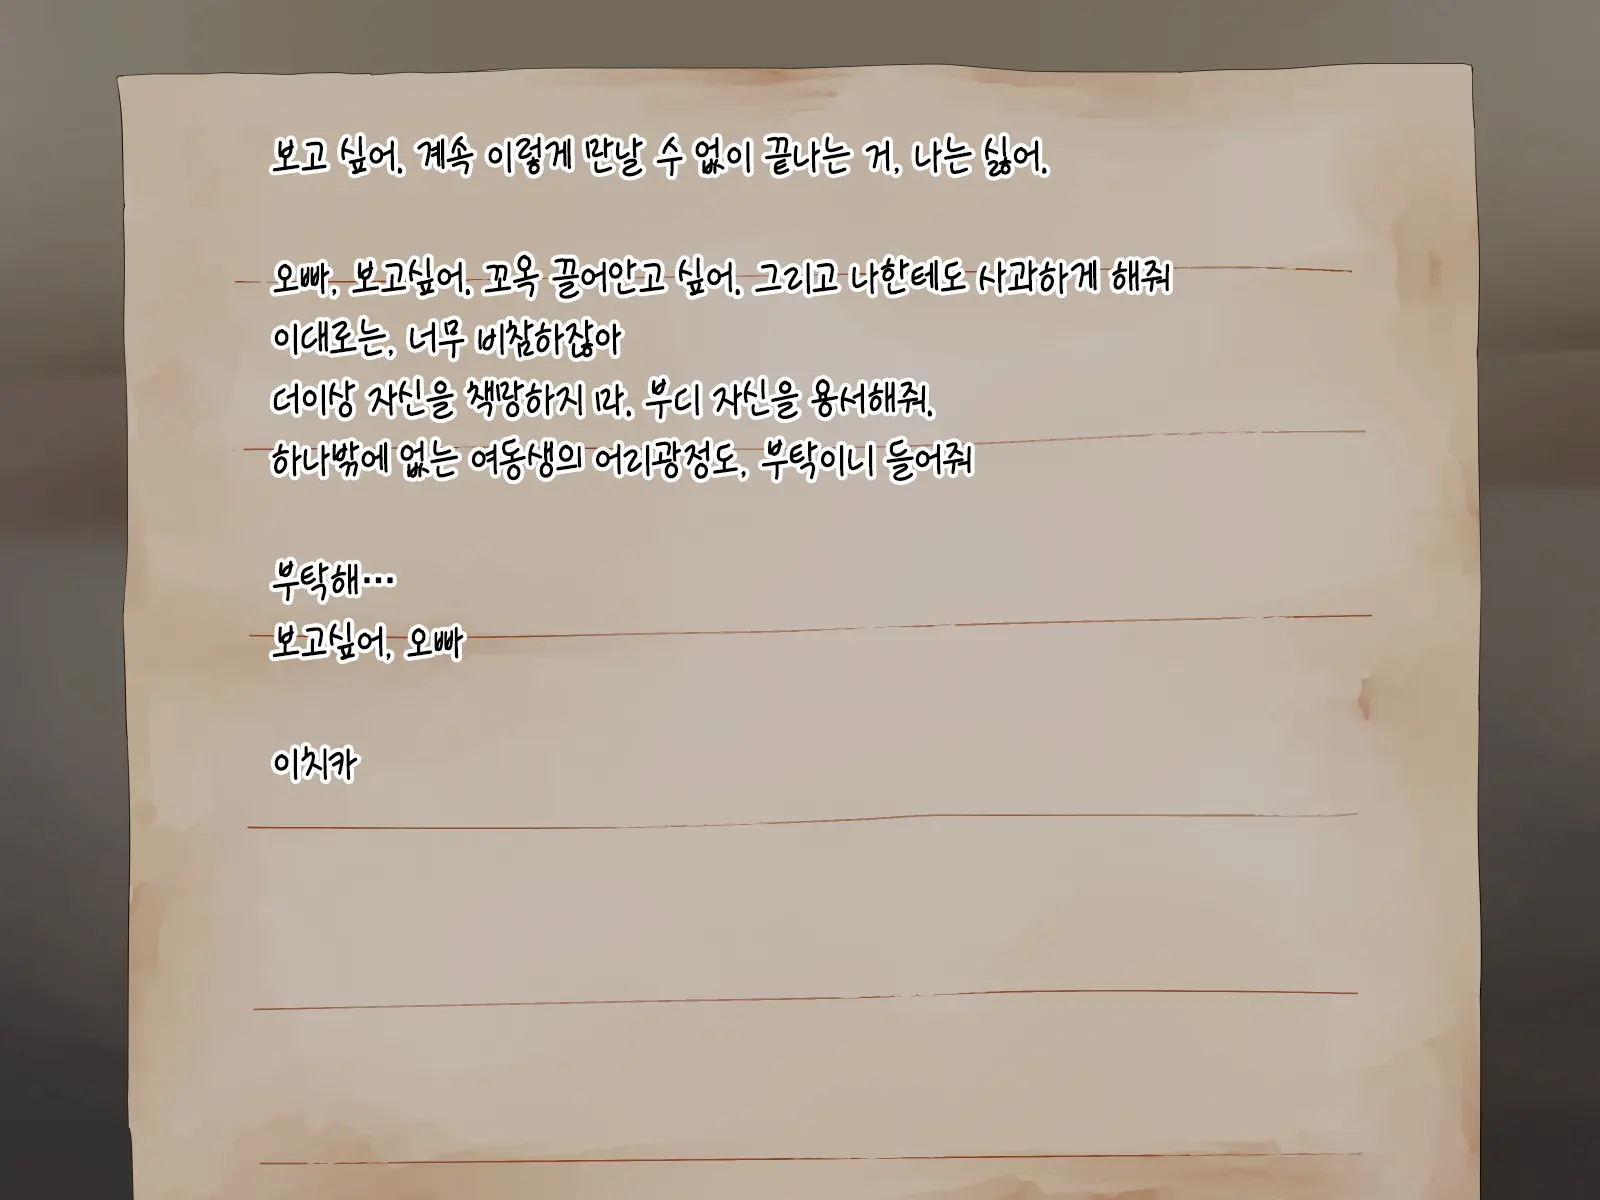 보고 싶어. 계속 이렇게 만날 수 없이 끝나는 거, 나는 싫어.
오빠, 보고싶어. 꼬옥 끌어안고 싶어. 그리고 나한테도 사과하게 해줘
이대로는, 너무 비참하잖아
더이상 자신을 책망하지 마. 부디 자신을 용서해줘.
하나밖에 없는 여동생의 어리광정도, 부탁이니 들어줘
부탁해…
보고싶어, 오빠
이치카